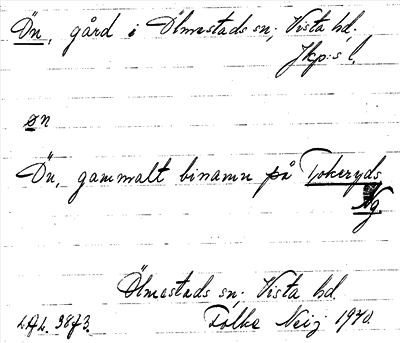 Ön, gård i Ölmestads sn; Vista hd.
Jkp:s l,
øn
Ön, gammalt binamn på Tokeryds
Ng
Ölmestads sn; Vista hd.
L.A.L. 3873. Folke Neij 1940.